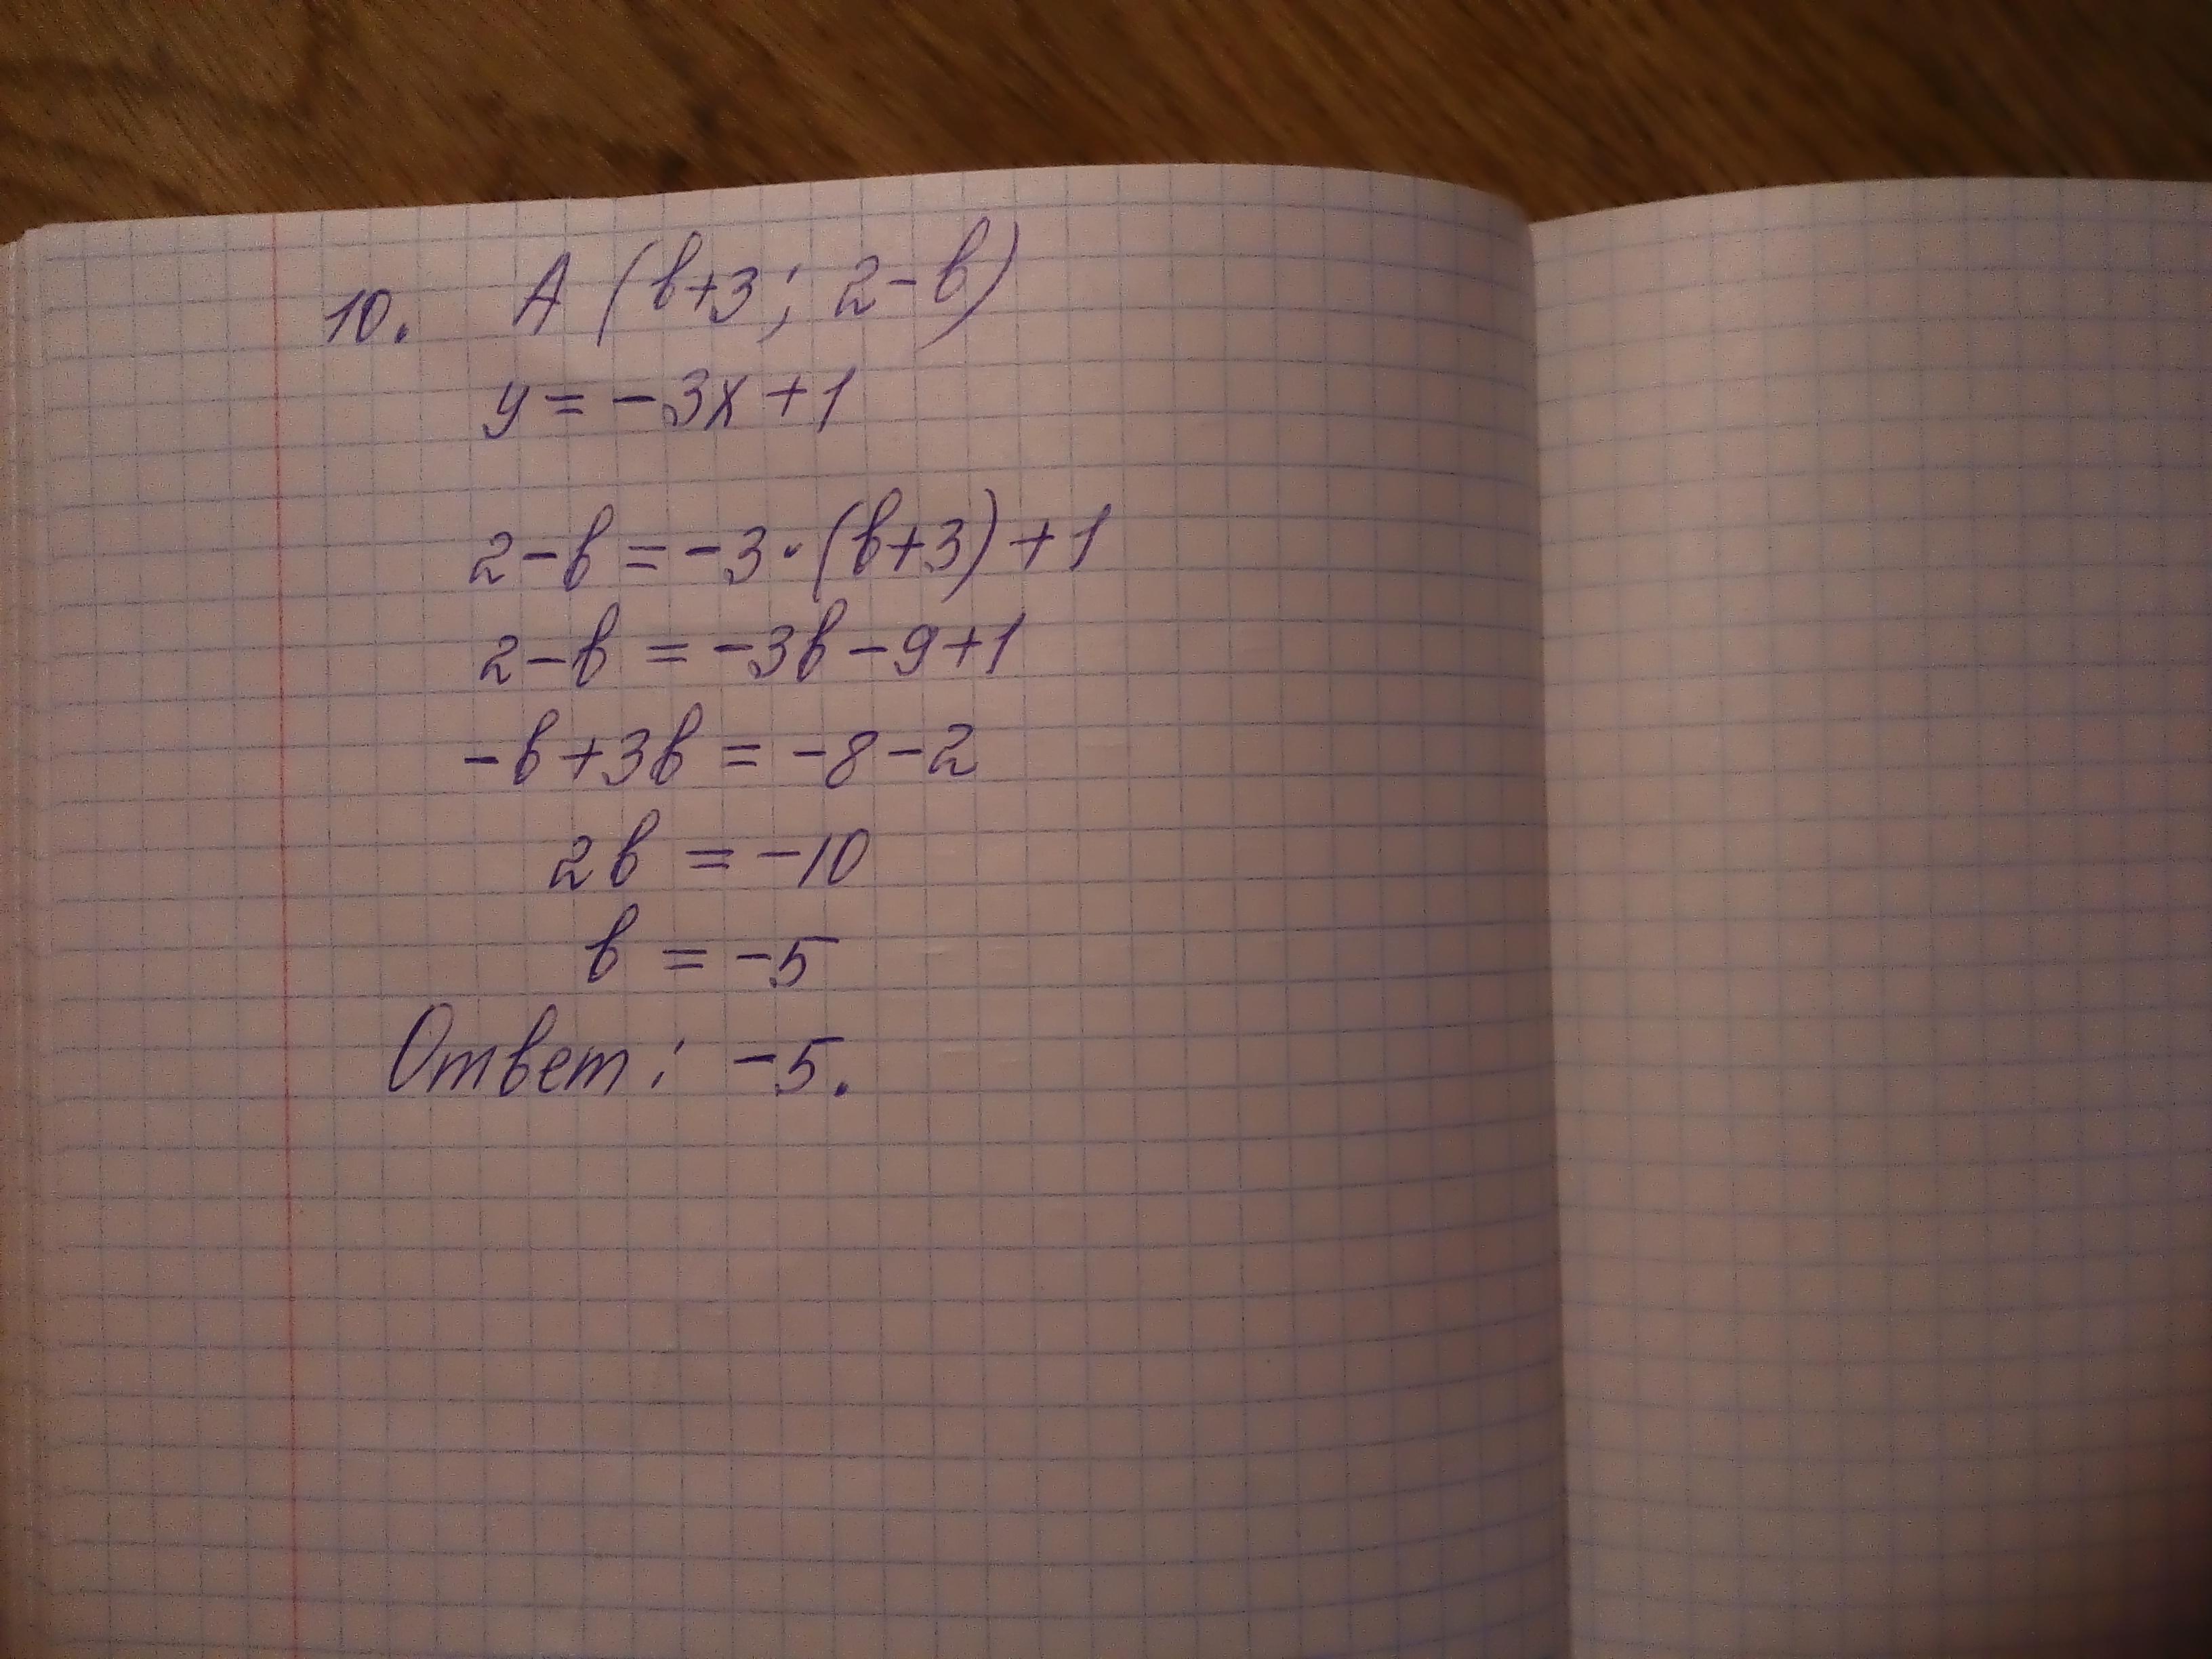 10. A (b+3; 2-b)
y = -3x+1
2-b = -3·(b+3)+1
2-b = -3b-9+1
-b+3b = -8-2
2b = -10
b = -5
Ответ: -5.